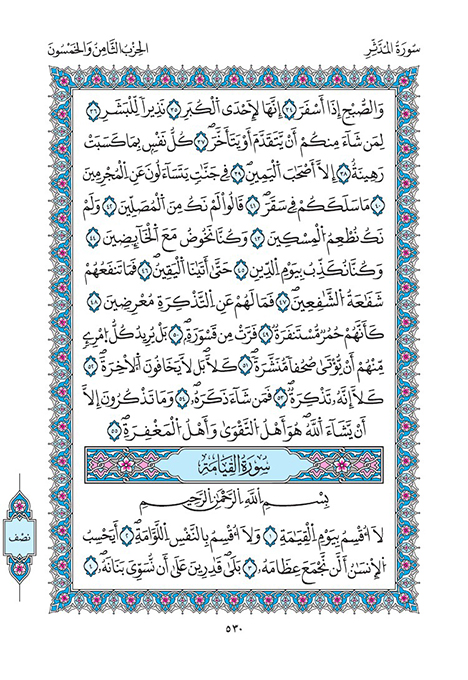 سُورَةُ المُدَّثِّرِ
الحِزْبُ الثَّامِنُ وَالخَمْسُونَ
وَالصُّبْحِ إِذَا أَسْفَرَ ٣٤ إِنَّهَا لَإِحْدَى الْكُبَرِ ٣٥ نَذِيرًا لِّلْبَشَرِ ٣٦
لِمَن شَآءَ مِنكُمْ أَنْ يَتَقَدَّمَ أَوْ يَتَأَخَّرَ ٣٧ كُلُّ نَفْسٍ بِمَا كَسَبَتْ
رَهِينَةٌ ٣٨ إِلَّا أَصْحَٰبَ الْيَمِينِ ٣٩ فِي جَنَّٰتٍ يَتَسَآءَلُونَ عَنِ الْمُجْرِمِينَ
٤٠ مَا سَلَكَكُمْ فِي سَقَرَ ٤١ قَالُوا لَمْ نَكُ مِنَ الْمُصَلِّينَ ٤٢ وَلَمْ
نَكُ نُطْعِمُ الْمِسْكِينَ ٤٣ وَكُنَّا نَخُوضُ مَعَ الْخَآئِضِينَ ٤٤
وَكُنَّا نُكَذِّبُ بِيَوْمِ الدِّينِ ٤٥ حَتَّىٰ أَتَىٰنَا الْيَقِينُ ٤٦ فَمَا تَنفَعُهُمْ
شَفَٰعَةُ الشَّٰفِعِينَ ٤٧ فَمَا لَهُمْ عَنِ التَّذْكِرَةِ مُعْرِضِينَ ٤٨
كَأَنَّهُمْ حُمُرٌ مُّسْتَنفَرَةٌ ٤٩ فَرَّتْ مِن قَسْوَرَةٍ ٥٠ بَلْ يُرِيدُ كُلُّ امْرِئٍ
مِّنْهُمْ أَنْ يُؤْتَىٰ صُحُفًا مُّنَشَّرَةً ٥١ كَلَّا بَل لَّا يَخَافُونَ الْآخِرَةَ ٥٢
كَلَّا إِنَّهُ تَذْكِرَةٌ ٥٣ فَمَن شَآءَ ذَكَرَهُ ٥٤ وَمَا تَذْكُرُونَ إِلَّا
أَنْ يَشَآءَ اللَّهُ هُوَ أَهْلُ التَّقْوَىٰ وَأَهْلُ الْمَغْفِرَةِ ٥٥
سُورَةُ القِيَامَةِ
بِسْمِ اللَّهِ الرَّحْمَٰنِ الرَّحِيمِ
لَا أُقْسِمُ بِيَوْمِ الْقِيَٰمَةِ ١ وَلَا أُقْسِمُ بِالنَّفْسِ اللَّوَّامَةِ ٢ أَيَحْسِبُ
الْإِنسَٰنُ أَلَّن نَّجْمَعَ عِظَامَهُ ٣ بَلَىٰ قَٰدِرِينَ عَلَىٰ أَن نُّسَوِّيَ بَنَانَهُ ٤
نصف
٥٣٠